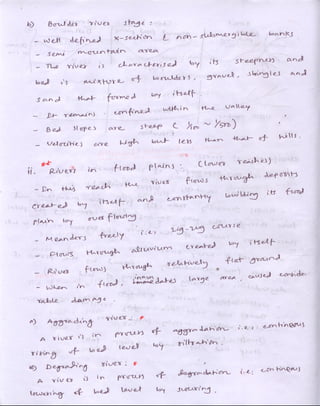 b) Boulder river stage :
- well defined x-section & non-submergible banks
- semi mountain area
- The river is characterised by its steepness and
bed is mixture of boulders, gravel, shingles and
sand that formed by itself.
- It remains confined within the valley
- Bed slopes are steep ( 1/50 ~ 1/500 )
- Velocities are high but less than that of hills.
ii. Rivers in flood plains : (lower reaches)
- In this reach the river flows through deposits
created by itself, and constantly building its flood
plain by over flowing
- Meanders freely i.e., zig-zag course
- Flows through alluvium created by itself
- River flows through relatively flat ground
- when in flood, inundates large area, caused conside-
rable damage.
a) Aggrading river :
A river is in process of aggradation i.e., continuous
rising of bed level by siltration.
b) Degrading river :
A river is in process of degradation i.e; continuous
lowering of bed level by scouring.